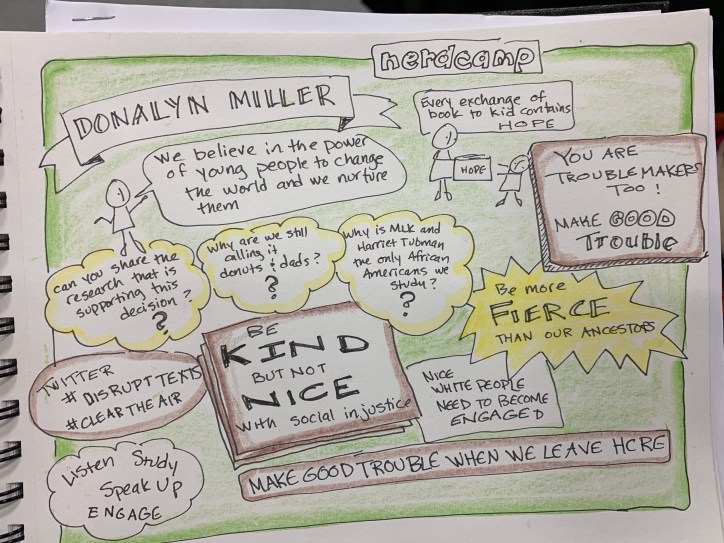 nerdcamp
DONALYN MILLER
Every exchange of
book to kid contains
HOPE
HOPE
we believe in the power
of young people to change
the world and we nurture
them
YOU ARE
TROUBLE MAKERS
TOO!
MAKE GOOD
Trouble
can you share the
research that is
supporting this
decision?
why are we still
calling it
donuts & dads?
why is MLK and
Harriet Tubman
the only African
Americans we
study?
Be more
FIERCE
THAN OUR ANCESTORS
BE
KIND
BUT NOT
NICE
with social injustice
TWITTER
# DISRUPTTEXTS
#CLEARTHEAIR
NICE
WHITE PEOPLE
NEED TO BECOME
ENGAGED
Listen Study
Speak Up
ENGAGE
MAKE GOOD TROUBLE WHEN WE LEAVE HERE